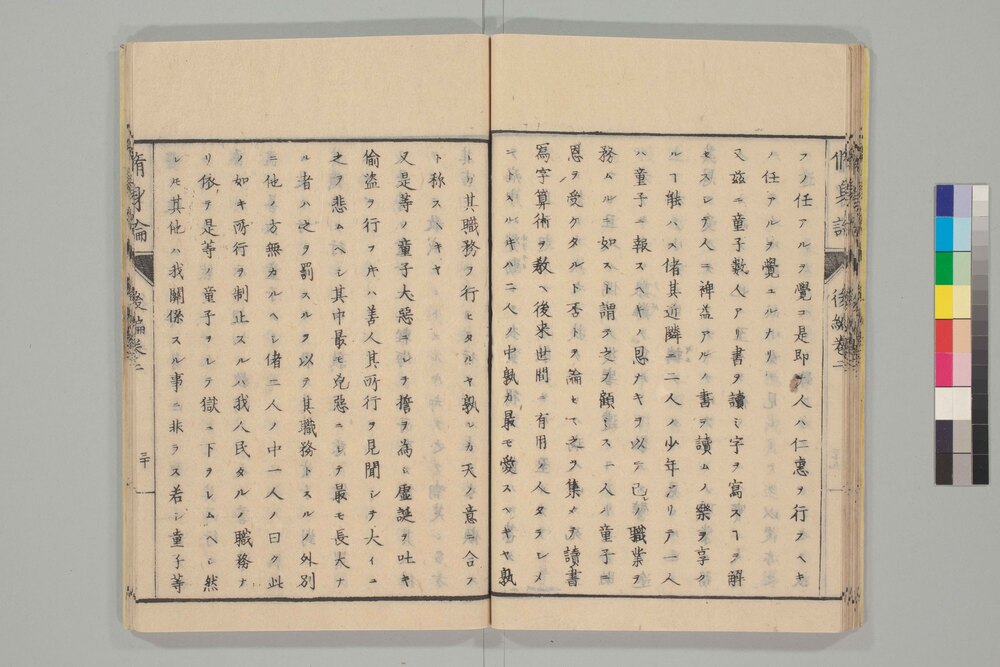 フノ任アルヲ覺ユ是即チ人ハ仁惠ヲ行フヘキ
ノ任アルヲ覺ユルナリ
又茲ニ童子數人アリ書ヲ讀ミ字ヲ寫スヿヲ解
セスシテ人ニ裨益アルノ書ヲ讀ムノ樂ヲ享ク
ルヿ能ハス偖其近隣ニ二人ノ少年アリテ一人
ハ童子ニ報スヘキノ恩ナキヲ以テ己レノ職業ヲ
務ムル如スト謂テ之ヲ顧ミス一人ハ童子ニ
恩ヲ受ケタルト否トヲ論セス之ヲ集メテ讀書
寫字算術ヲ教ヘ後来世間ニ有用ノ人タラシメ
ントスルキハ二人ノ中孰カ最モ愛スヘキヤ孰
カ其職務ヲ行ヒタルヤ孰レカ天ノ意ニ合ス
ト称スヘキヤ
又是等ノ童子大惡ニシテ擔ヲ為シ虚誕ヲ吐キ
偷盗ヲ行フキハ善人其所行ヲ見聞シテ大イニ
之ヲ悲ムヘシ其中最モ兇惡ニシテ最モ長大ナ
ル者ハ之ヲ罰スルヲ以テ其職務トスルノ外別
ニ他ノ方無カルヘシ偖二人ノ中一人ノ曰ク此
ノ如キ所行ヲ制止スルハ我人民タルノ職務ナ
リ依テ是等ノ童子ヲシテ獄ニ下ラシムヘシ然
レモ其他ハ我關係スル事ニ非ラス若シ童子等
脩身論
後編巻二
三十